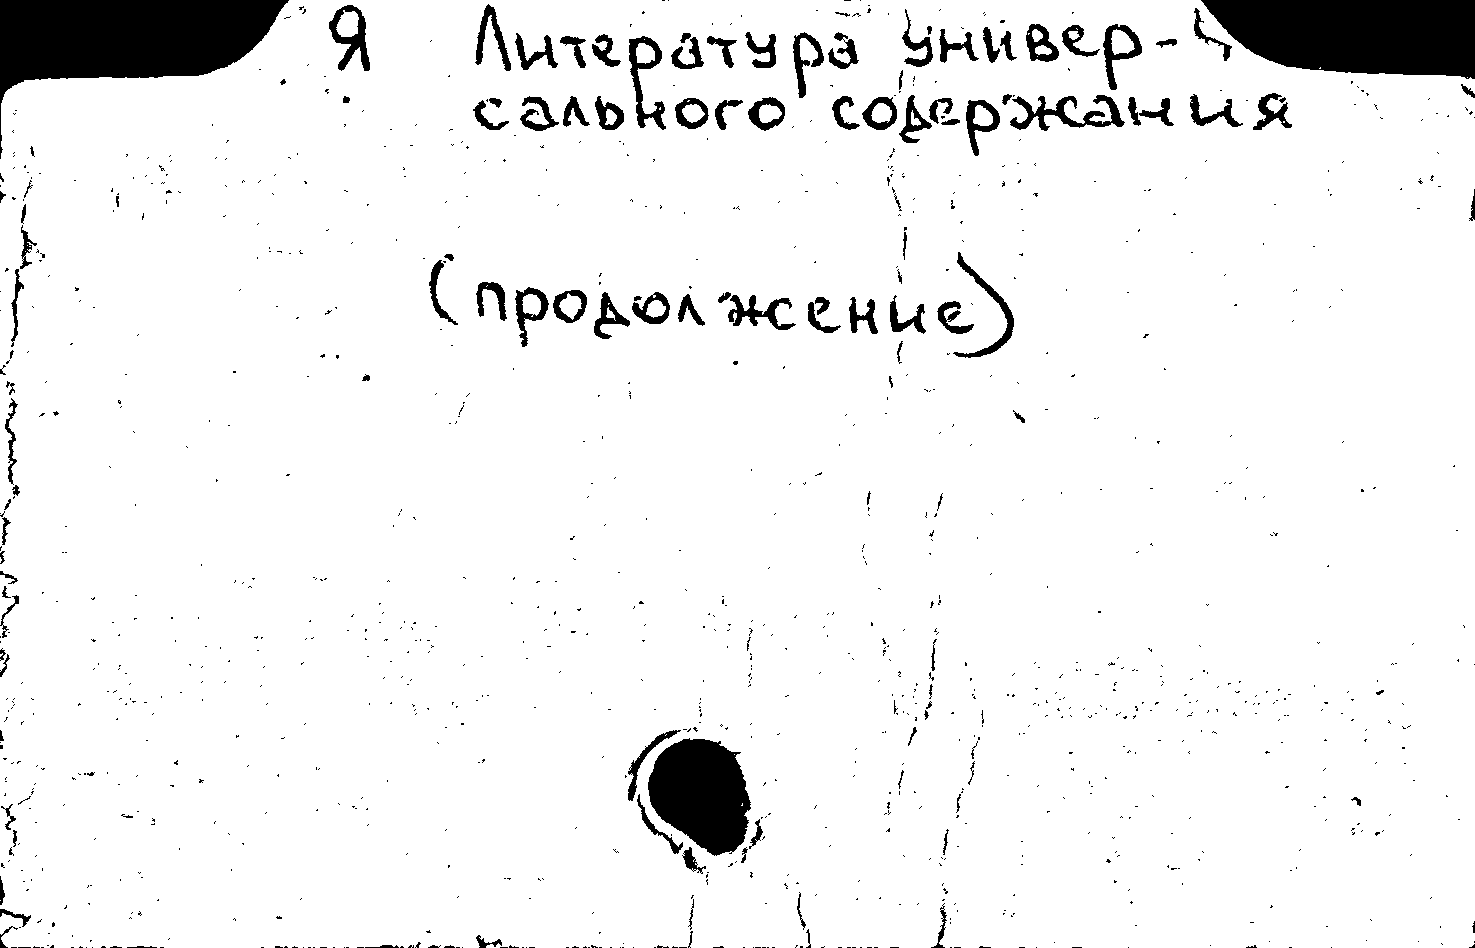 Я Литература универ-
сального содержания
(продолжение)